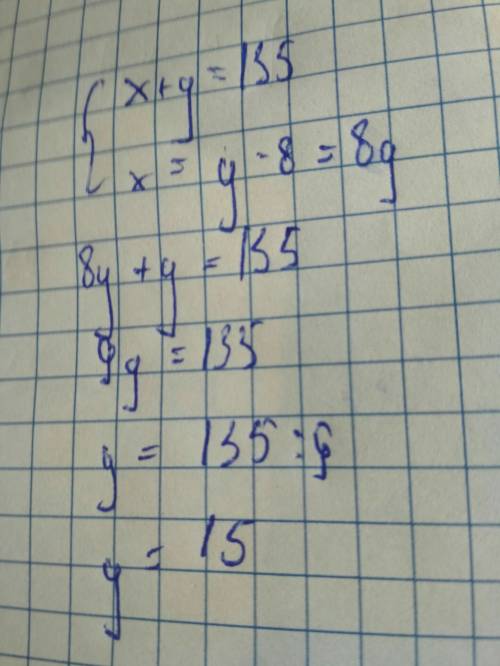 { x+y = 135
x = y · 8 = 8y
8y + y = 135
9y = 135
y = 135 : 9
y = 15